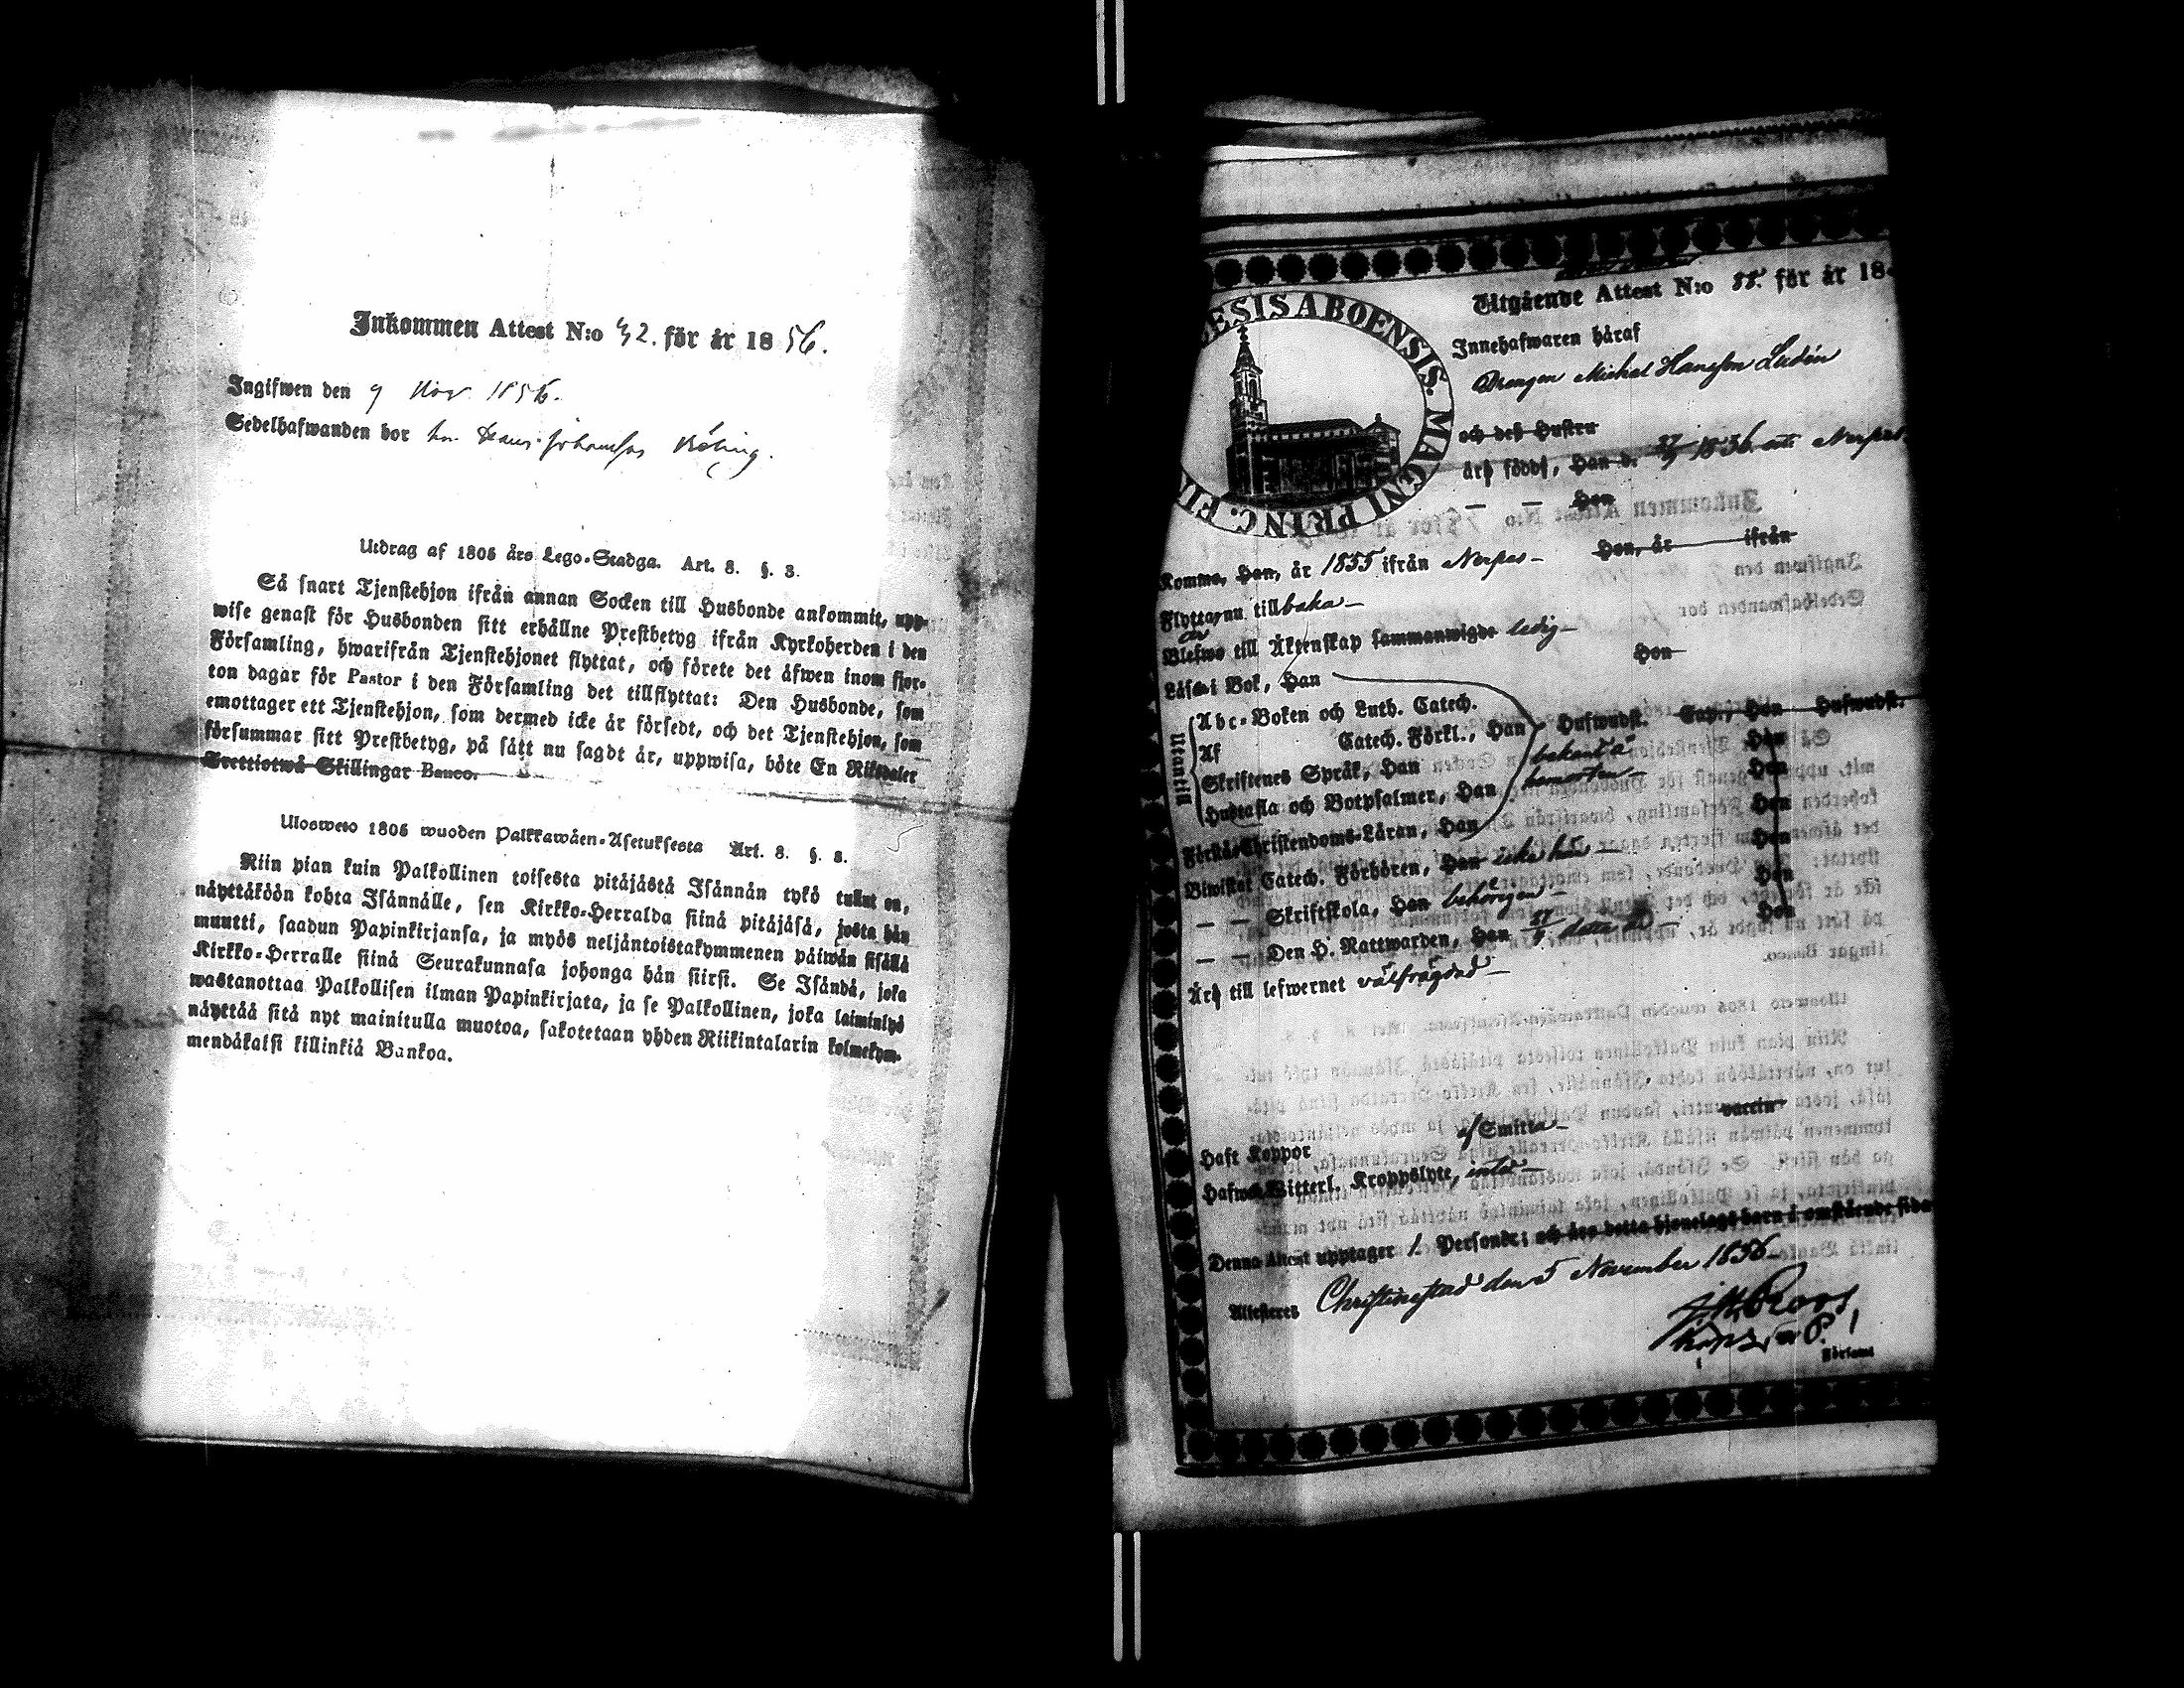 Inkommen Attest N:o 42. för år 1856.
Ingifwen den 9 Nov 1856.
Sedelhafwanden bor
Utdrag af 1805 års Lego-Stadga. Art. 8. §. 3.
Så snart Tjenstehjon ifrån annan Socken till Husbonde ankommit, upp-
wise genast för Husbonden sitt erhållne Prestbetyg ifrån Kyrkoherden i den
Församling, hwarifrån Tjenstehjonet flyttat, och förete det äfwen inom fjor-
ton dagar för Pastor i den Församling det tillflyttat: Den Husbonde, som
emottager ett Tjenstehjon, som dermed icke är försedt, och det Tjenstehjon, som
försummar sitt Prestbetyg, på sätt nu sagdt är, uppwisa, böte En Riksdaler
Trettiotwå Skillingar Banco.
Ulosweto 1805 wuoden Palkkawäen-Asetuksesta Art. 8. §. 3.
Niin pian kuin Palkollinen toisesta pitäjästä Isännän tykö tullut on,
näyttäköön kohta Isännälle, sen Kirkko-Herralda siinä pitäjäsä, josta hän
muutti, saadun Papinkirjansa, ja myös neljäntoistakymmenen päiwän sisällä
Kirkko-Herralle siinä Seurakunnasa johonga hän siirsi. Se Isändä, joka
wastanottaa Palkollisen ilman Papinkirjata, ja se Palkollinen, joka laiminlyö
näyttää sitä nyt mainitulla muotoa, sakotetaan yhden Riikintalarin kolmekym-
mendäkaksi killinkiä Bankoa.
ESIS ABOENSIS. MAGNI PRINC. FI
Utgående Attest N:o 88. för år 18
Innehafwaren häraf
Drengen Michel Hansson Ludén
och dess Hustru
äro födde, Han d. 1836. uti Nerpes
— — Hon
Komme, Han, år 1855 ifrån Nerpes — Hon, år ifrån
Flytta, nu tillbaka —
Blefwo till Äktenskap sammanwigde ledig —
Hon
Läser i Bok, Han
Utantill
Abc-Boken och Luth. Catech.
Af Catech. Förkl., Han Hufwudst. Cap., Hon Hufwudst.
Skriftenes Språk, Han Hon
Hustafla och Botpsalmer, Han Hon
Förstår Christendoms-Läran, Han Hon
Biwistat Catech. Förhören, Han icke här — Hon
— — Skriftskola, Han behörigen — Hon
— — Den H. Nattwarden, Han Hon
Äro till lefwernet välfrägdad —
Haft Koppor af Smitta — vaccin
Hafwa Witterl. Kroppslyte, intet —
Denna Attest upptager 1. Personer; och äro detta hjonelags barn å omstående sida
Attesteres Christinestad den 5 November 1856 —
Församl